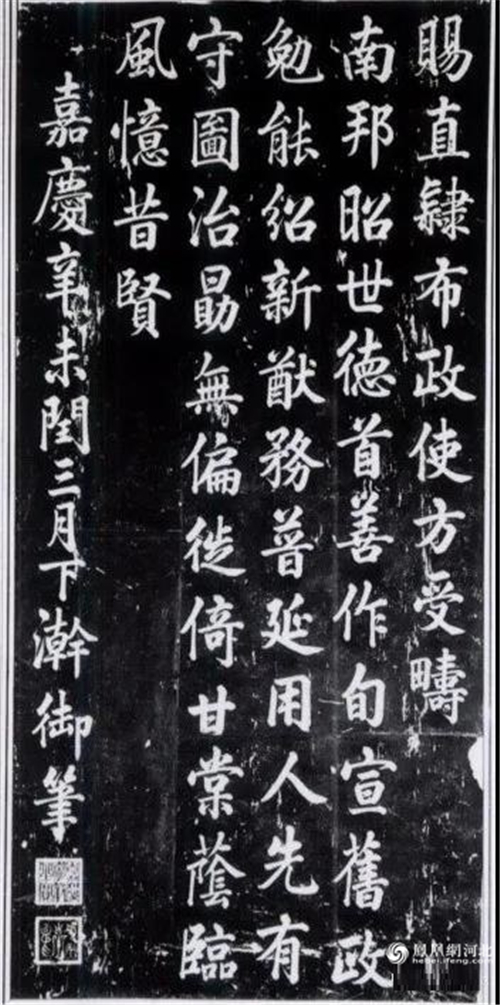 賜直隸布政使方受疇
南邦昭世德首善作旬宣舊政
勉能紹新猷務普延用人先有
守圖治勗無偏徙倚甘棠蔭臨
風憶昔賢
嘉慶辛未閏三月下澣御筆
鳳凰網河北
hebei.ifeng.com